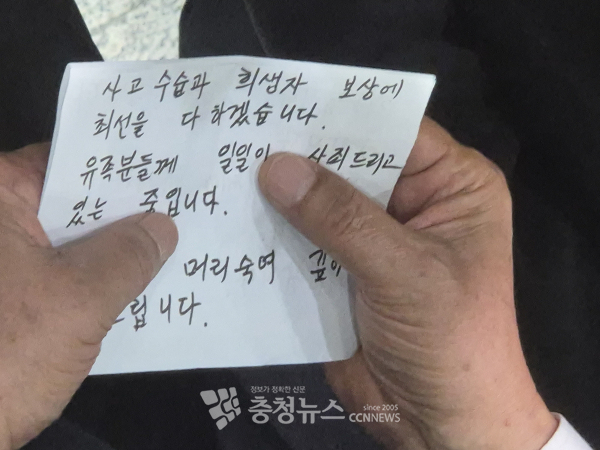 사고 수습과 희생자 보상에
최선을 다 하겠습니다.
유족분들께 일일이 사죄드리고
있는 중입니다.
머리숙여 깊이
드립니다.
정보가 정확한 신문
충청뉴스 since 2005
CCNNEWS